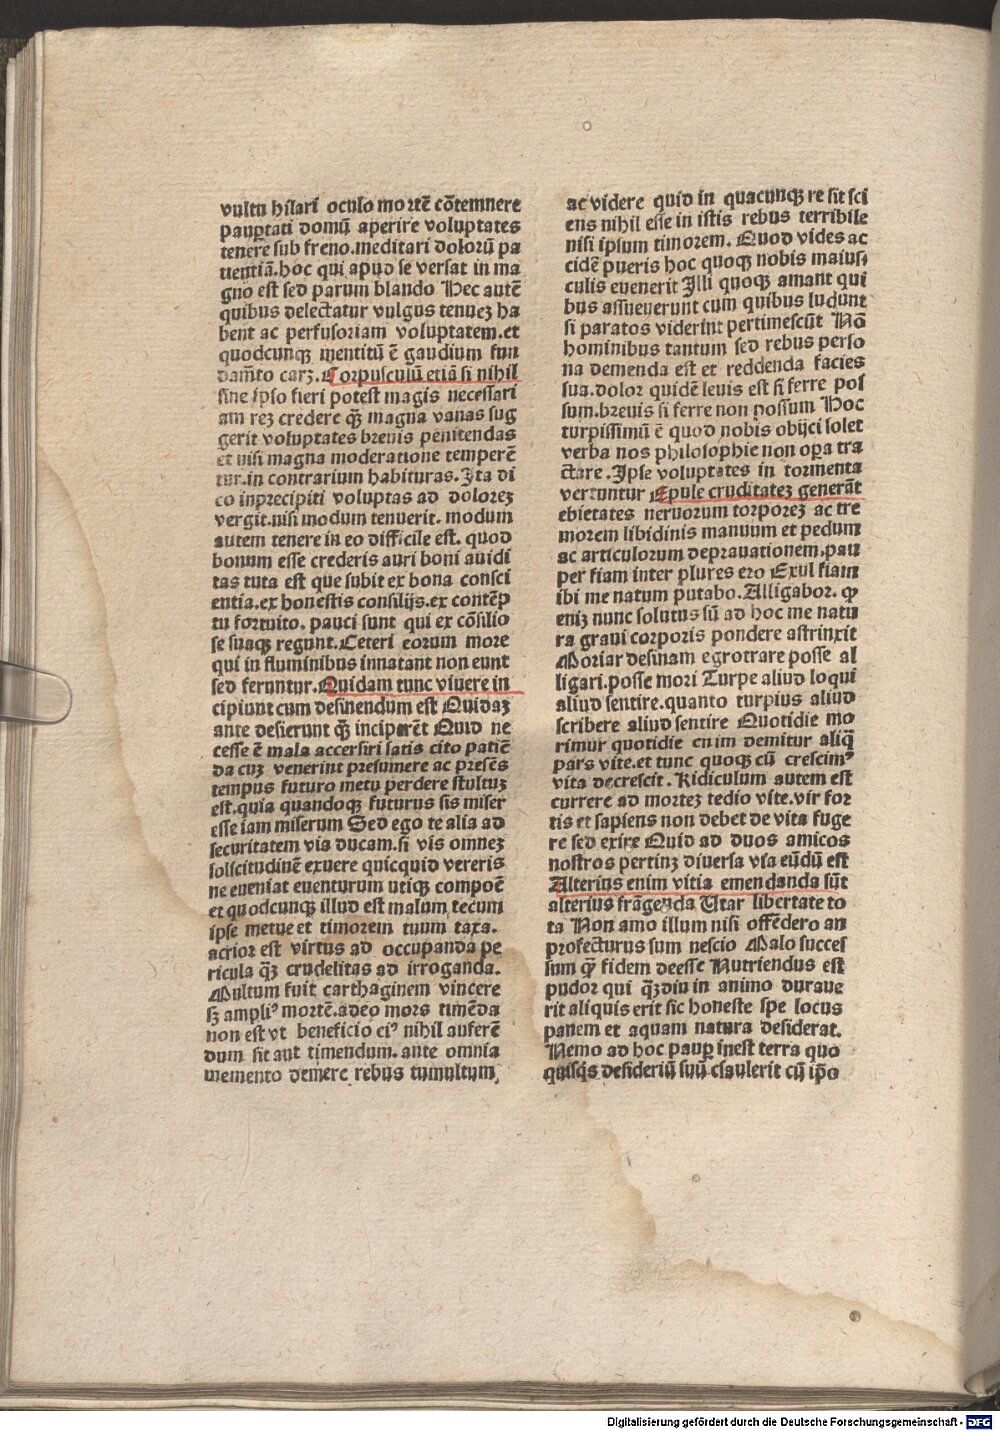 vultu hilari oculo mortē cōtemnere
paup̱tati domū aperire voluptates
tenere sub freno.meditari dolorū pa
tientiā.hoc qui apud se versat in ma
gno est sed parum blando Hec autē
quibus delectatur vulgus tenueꝫ ha
bent ac perfusoriam voluptatem.et
quodcunqꝫ mentitū ē gaudium fun
damēto carꝫ.Corpusculū etiā si nihil
sine ipso fieri potest magis necessari
am reꝫ credere qꝫ magna vanas sug
gerit voluptates breuis penitendas
et nisi magna moderatione temperē
tur.in contrarium habituras.Ita di
co inprecipiti voluptas ad doloreꝫ
vergit.nisi modum tenuerit. modum
autem tenere in eo difficile est. quod
bonum esse crederis auri boni auidi
tas tuta est que subit ex bona consci
entia.ex honestis consilijs.ex contēp
tu fortuito. pauci sunt qui ex cōsilio
se suaqꝫ regunt.Ceteri eorum more
qui in fluminibus innatant non eunt
sed feruntur.Quidam tunc viuere in
cipiunt cum desinendum est Quidaꝫ
ante desierunt qꝫ inciperēt Quid ne
cesse ē mala accersiri satis cito patiē
da cuꝫ venerint presumere ac presēs
tempus futuro metu perdere stultuꝫ
est.quia quandoqꝫ futurus sis miser
esse iam miserum Sed ego te alia ad
securitatem via ducam.si vis omneꝫ
solicitudinē exuere quicquid vereris
ne eueniat euenturum utiqꝫ compoē
et quodcunqꝫ illud est malum tecum
ipse metue et timorem tuum taxa.
acrior est virtus ad occupanda pe
ricula qꝫ crudelitas ad irroganda.
Multum fuit carthaginem vincere
sꝫ ampliꝰ mortē.adeo mors timēda
non est vt beneficio eiꝰ nihil auferē
dum sit aut timendum.ante omnia
memento demere rebus tumultum,
ac videre quid in quacunqꝫ re sit sci
ens nihil esse in istis rebus terribile
nisi ipsum timorem. Quod vides ac
cidē pueris hoc quoqꝫ nobis maius⸗
culis euenerit Illi quoqꝫ amant qui
bus assueuerunt cum quibus ludunt
si paratos viderint pertimescūt Nō
hominibus tantum sed rebus perso
na demenda est et reddenda facies
sua.dolor quidē leuis est si ferre pos
sum.breuis si ferre non possum Hoc
turpissimū ē quod nobis obijci solet
verba nos philosophie non oꝑa tra
ctare.Ipse voluptates in tormenta
vertuntur Epule cruditateꝫ generāt
ebietates neruorum torporeꝫ ac tre
morem libidinis manuum et pedum
ac articulorum deprauationem.pau
per fiam inter plures ero Exul fiam
ibi me natum putabo.Alligabor. qꝫ
eniꝫ nunc solutus sū ad hoc me natu
ra graui corporis pondere astrinxit
Moriar desinam egrotrare posse al
ligari.posse mori Turpe aliud loqui
aliud sentire.quanto turpius aliud
scribere aliud sentire Quotidie mo
rimur quotidie enim demitur aliq̄
pars vite.et tunc quoqꝫ cū crescimꝰ
vita decrescit.Ridiculum autem est
currere ad morteꝫ tedio vite.vir for
tis et sapiens non debet de vita fuge
re sed exire Quid ad duos amicos
nostros pertinꝫ diuersa via eūdū est
Alterius enim vitia emendanda sūt
alterius frāgenda Utar libertate to
ta Non amo illum nisi offēdero an
profecturus sum nescio Malo succes
sum qꝫ fidem deesse Nutriendus est
pudor qui qꝫdiu in animo duraue
rit aliquis erit sic honeste spe locus
panem et aquam natura desiderat.
Nemo ad hoc paup̱ inest terra quo
quisqꝫ desideriū suū clauserit cū ip̄o
Digitalisierung gefördert durch die Deutsche Forschungsgemeinschaft - DFG